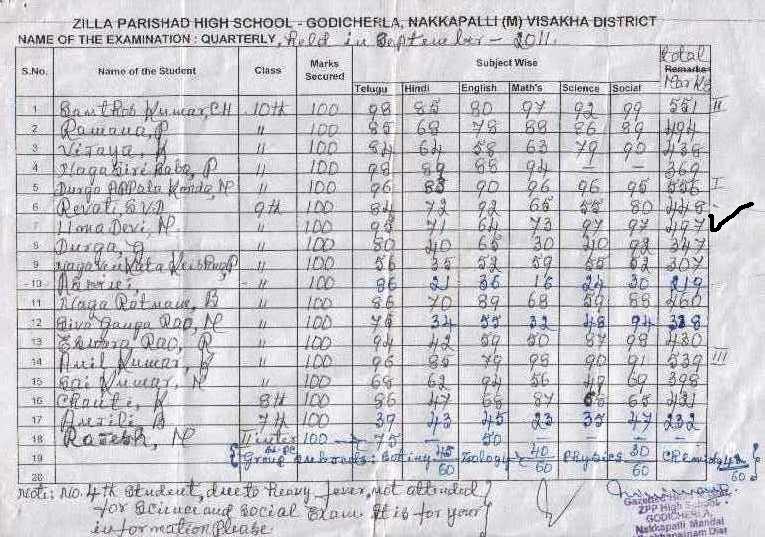 ZILLA PARISHAD HIGH SCHOOL - GODICHERLA, NAKKAPALLI (M) VISAKHA DISTRICT
NAME OF THE EXAMINATION : QUARTERLY, held in September - 2011.
S.No. Name of the Student Class Marks Secured Subject Wise Total Remarks Marks
Telugu Hindi English Math's Science Social
1 Santhosh Kumar, CH 10th 100 98 85 80 97 92 99 551 II
2 Ramana, P " 100 85 68 78 88 86 89 494
3 Vijaya, " 100 84 64 58 63 79 90 438
4 Nagasiri Baba, P " 100 98 89 88 94 - - 369
5 Durga Appala Konda, N " 100 96 83 90 96 96 95 556 I
6 Revati 9th 100 84 72 92 65 55 80 448
7 Uma Devi, N. " 100 95 71 64 73 97 97 497
8 Durga, G " 100 80 40 65 30 40 92 347
9 P " 100 56 35 52 59 55 52 307
10 " 100 86 21 36 16 24 30 219
11 Naga Ratnam, B " 100 86 70 89 68 59 88 460
12 Siva Ganga Rao, N " 100 75 34 55 32 48 94 338
13 Eswara Rao, R " 100 94 42 59 50 87 98 430
14 Anil Kumar, " 100 96 85 79 98 90 91 539 III
15 Sai Kumar, N " 100 68 62 94 56 49 69 398
16 Chanti, K 8th 100 86 47 66 87 65 431
17 Anjili, B 7th 100 39 43 45 23 35 47 232
18 Rajesh, N II inter 100 → 75 - 50 - - -
19 { Group subjects: Botiny 45/60 Zoology > 40/60 Physics 30/60 Chemistry /60 }
20
Note: No. 4th Student, due to heavy fever, not attended
for Science and Social Exam. It is for your
information please
ZPP High School
GODICHERLA
Nakkapalli Mandal